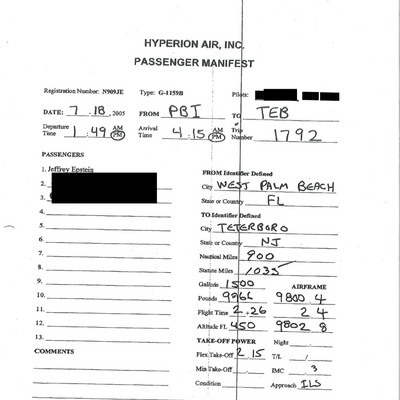 HYPERION AIR, INC.
PASSENGER MANIFEST
Registration Number: N909JE Type: G-1159B Pilots:
DATE: 7 . 18 , 2005 FROM PBI TO TEB
Departure Time 1 : 49 AM PM Arrival Time 4 : 15 AM PM Trip Number 1792
PASSENGERS
1. Jeffrey Epstein
2.
3.
4.
5.
6.
7.
8.
9.
10.
11.
12.
13.
COMMENTS
FROM Identifier Defined
City WEST PALM BEACH
State or Country FL
TO Identifier Defined
City TETERBORO
State or Country NJ
Nautical Miles 900
Statute Miles 1035
Gallons 1500 AIRFRAME
Pounds 9966 9800 4
Flight Time 2 . 26 2 4
Altitude FL 450 9802 8
TAKE-OFF POWER Night
Flex Take-Off 2.15 T/L /
Min Take-Off IMC .3
Condition Approach ILS